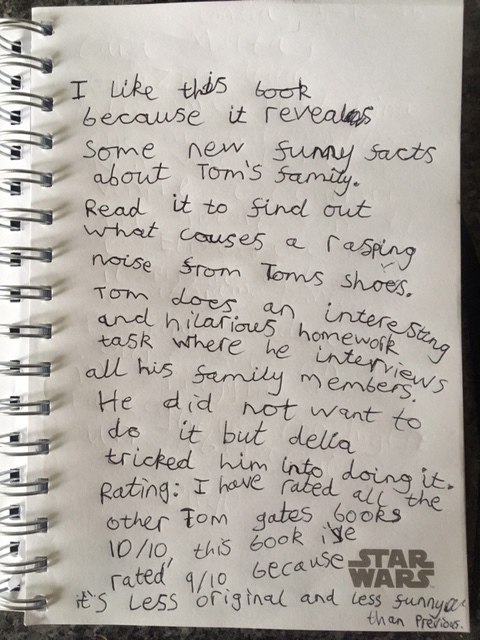 I like this book
because it reveals
some new funny facts
about Tom's family.
Read it to find out
what causes a rasping
noise from Toms shoes.
Tom does an interesting
and hilarious homework
task where he interviews
all his family members.
He did not want to
do it but della
tricked him into doing it.
Rating: I have rated all the
other Tom gates books
10/10, this book i've
rated 9/10 because
STAR
WARS
it's less original and less funny
than previous.